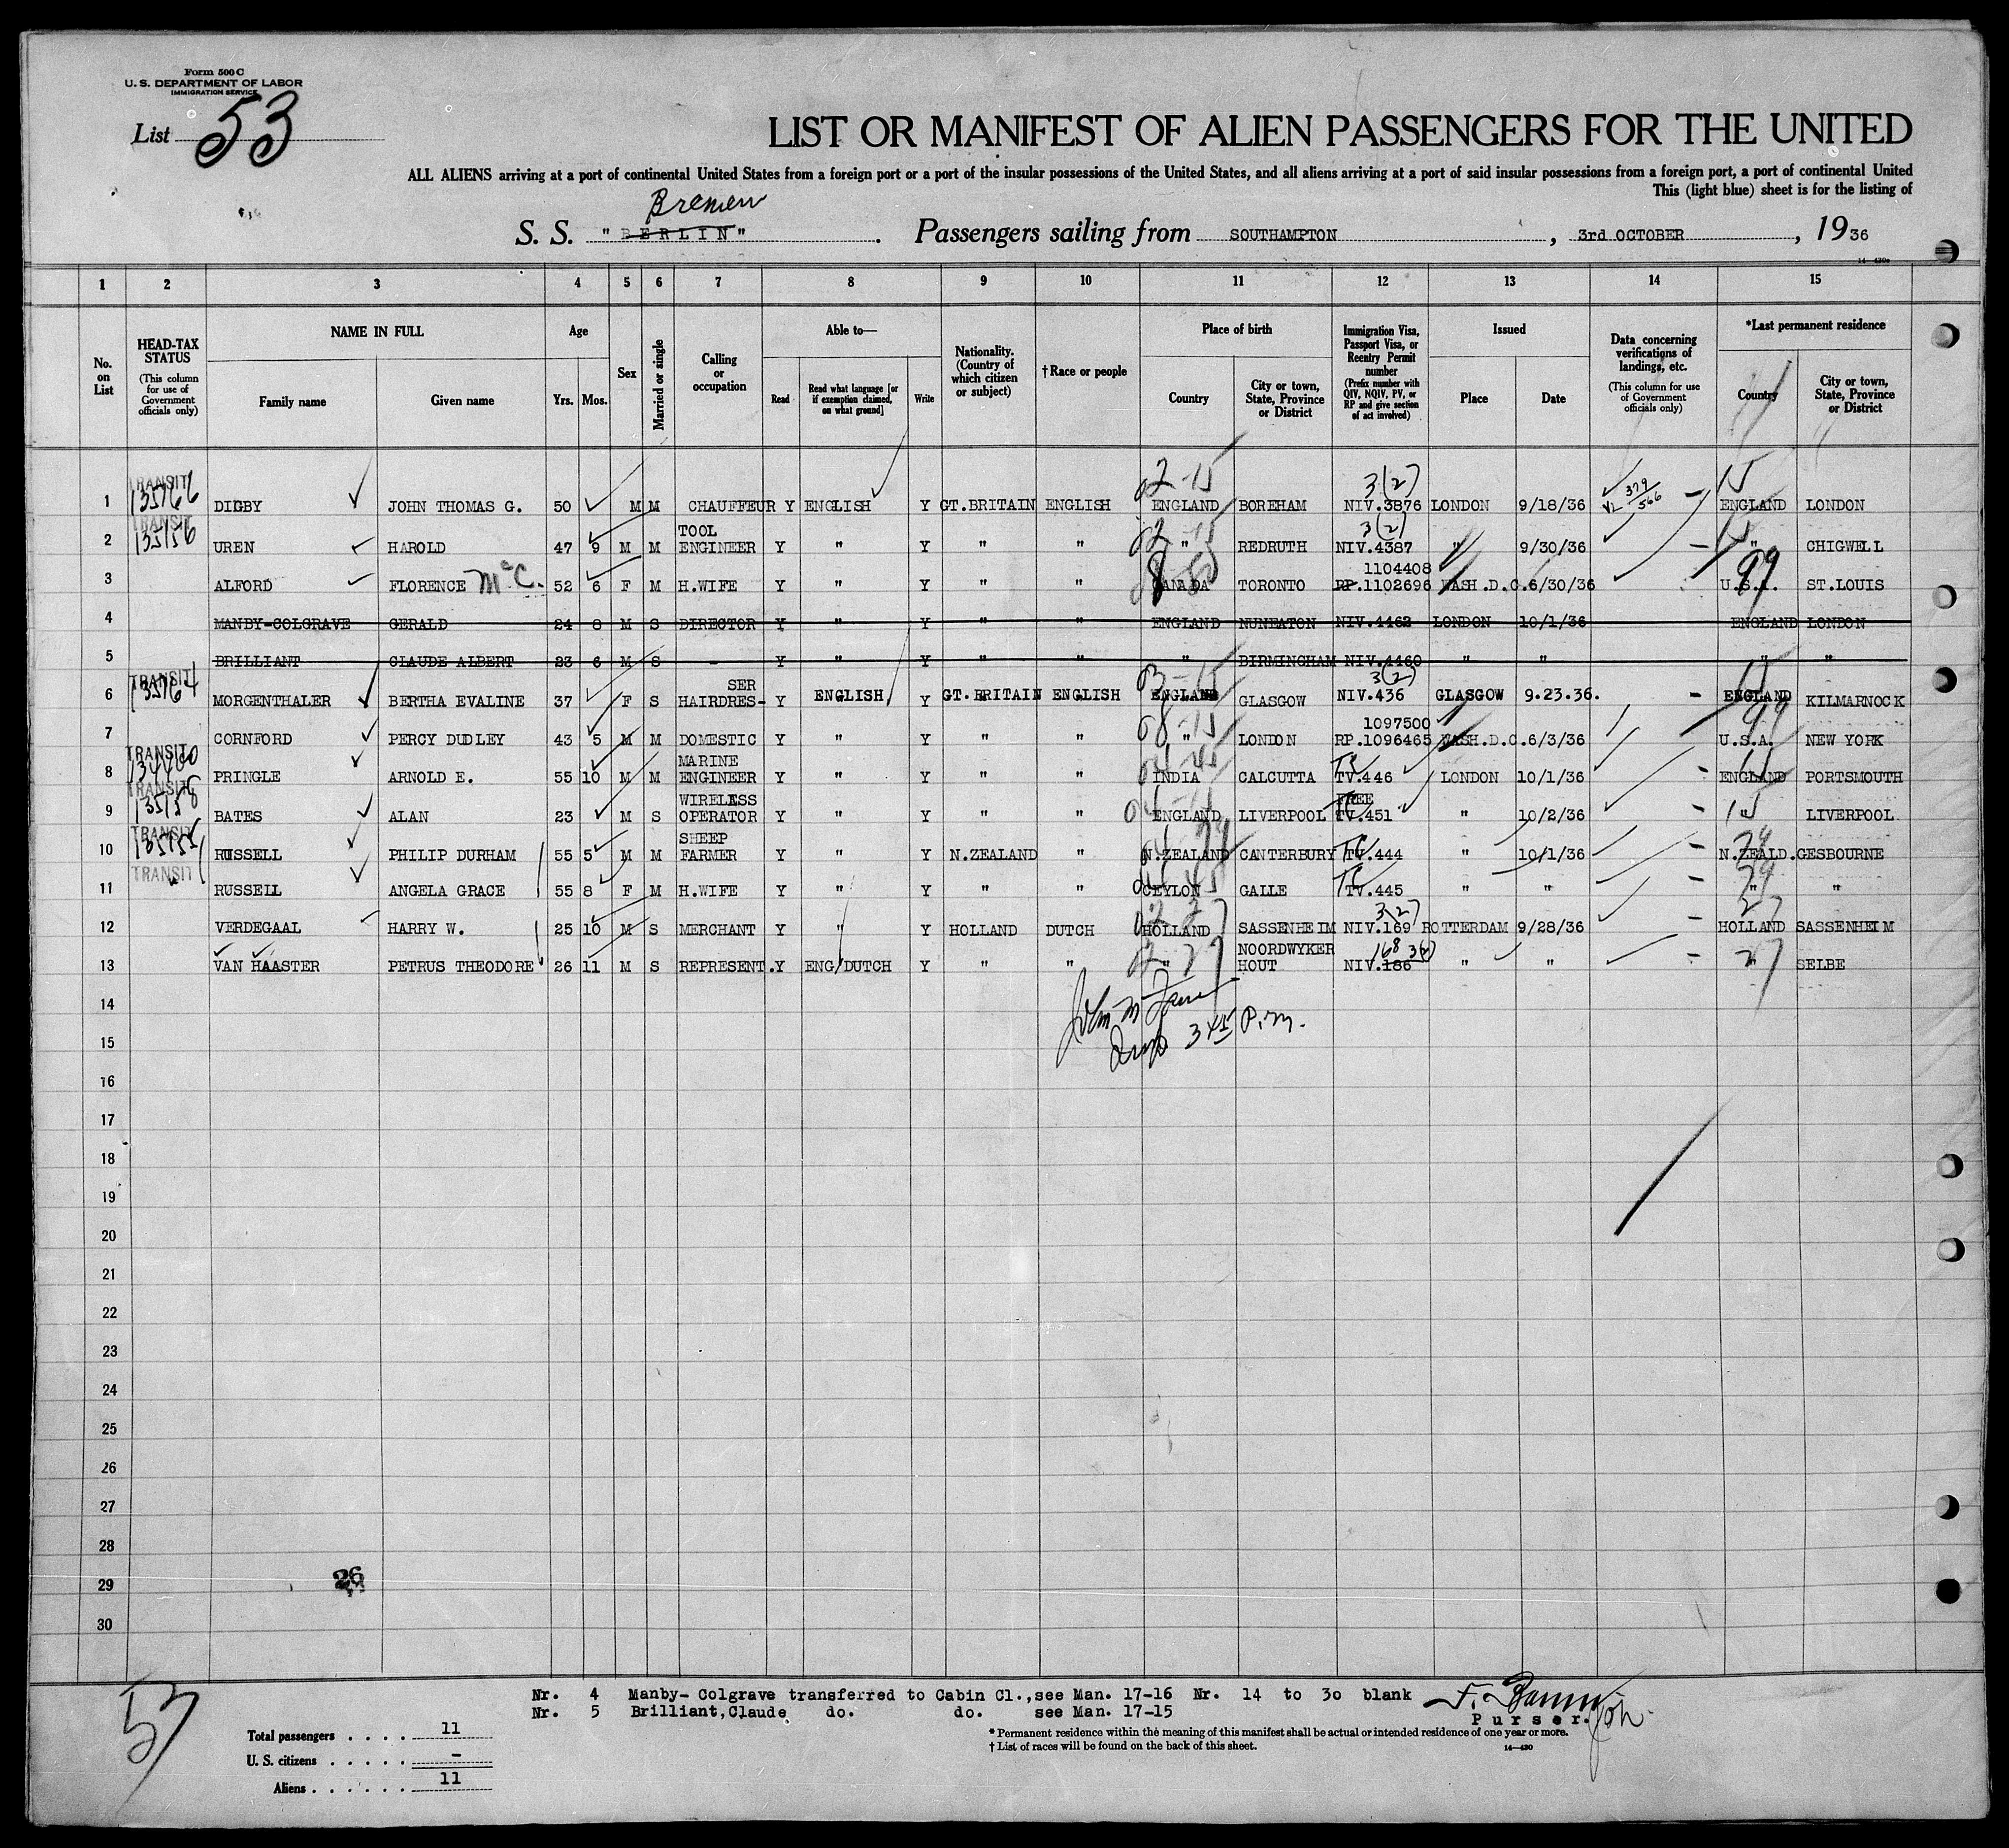 Form 500 C
U. S. DEPARTMENT OF LABOR
IMMIGRATION SERVICE
List 53
LIST OR MANIFEST OF ALIEN PASSENGERS FOR THE UNITED
ALL ALIENS arriving at a port of continental United States from a foreign port or a port of the insular possessions of the United States, and all aliens arriving at a port of said insular possessions from a foreign port, a port of continental United
This (light blue) sheet is for the listing of
Bremen
S. S. "BERLIN". Passengers sailing from SOUTHAMPTON, 3rd OCTOBER, 1936
1 2 3 4 5 6 7 8 9 10 11 12 13 14 15
No. on List
HEAD-TAX STATUS
(This column for use of Government officials only)
NAME IN FULL
Family name Given name
Age
Yrs. Mos.
Sex
Married or single
Calling or occupation
Able to—
Read
Read what language [or if exemption claimed, on what ground]
Write
Nationality. (Country of which citizen or subject)
†Race or people
Place of birth
Country
City or town, State, Province or District
Immigration Visa, Passport Visa, or Reentry Permit number
(Prefix number with QIV, NQIV, PV, or RP and give section of act involved)
Issued
Place Date
Data concerning verifications of landings, etc.
(This column for use of Government officials only)
*Last permanent residence
Country
City or town, State, Province or District
1 TRANSIT 135766 DIGBY JOHN THOMAS G. 50 M M CHAUFFEUR Y ENGLISH Y GT.BRITAIN ENGLISH 02-15 ENGLAND BOREHAM 3(2) NIV.3876 LONDON 9/18/36 VL 379/566 – 15 ENGLAND LONDON
2 TRANSIT 135156 UREN HAROLD 47 9 M M TOOL ENGINEER Y " Y " " " REDRUTH 3(2) NIV.4387 " 9/30/36 – " CHIGWELL
3 ALFORD FLORENCE McC. 52 6 F M H.WIFE Y " Y " " CANADA TORONTO 1104408 RP.1102696 WASH.D.C. 6/30/36 99 U.S.A. ST.LOUIS
4 MANBY-COLGRAVE GERALD 24 8 M S DIRECTOR Y " Y " " ENGLAND NUNEATON NIV.4462 LONDON 10/1/36 ENGLAND LONDON
5 BRILLIANT CLAUDE ALBERT 23 6 M S - Y " Y " " " BIRMINGHAM NIV.4460 " " " "
6 TRANSIT 135764 MORGENTHALER BERTHA EVALINE 37 F S SER HAIRDRES- Y ENGLISH Y GT.BRITAIN ENGLISH 03-15 ENGLAND GLASGOW 3(2) NIV.436 GLASGOW 9.23.36. – 15 ENGLAND KILMARNOCK
7 CORNFORD PERCY DUDLEY 43 5 M M DOMESTIC Y " Y " " 08-15 " LONDON 1097500 RP.1096465 WASH.D.C. 6/3/36 99 U.S.A. NEW YORK
8 TRANSIT PRINGLE ARNOLD E. 55 10 M M MARINE ENGINEER Y " Y " " INDIA CALCUTTA TV.446 LONDON 10/1/36 – ENGLAND PORTSMOUTH
9 TRANSIT 135158 BATES ALAN 23 M S WIRELESS OPERATOR Y " Y " " 04-15 ENGLAND LIVERPOOL FREE TV.451 " 10/2/36 – 15 LIVERPOOL
10 TRANSIT 135755 RUSSELL PHILIP DURHAM 55 5 M M SHEEP FARMER Y " Y N.ZEALAND " N.ZEALAND CANTERBURY TV.444 " 10/1/36 – N.ZEALD. GESBOURNE
11 TRANSIT " RUSSELL ANGELA GRACE 55 8 F M H.WIFE Y " Y " " CEYLON GALLE TV.445 " " – " "
12 VERDEGAAL HARRY W. 25 10 M S MERCHANT Y " Y HOLLAND DUTCH 02 27 HOLLAND SASSENHEIM 3(2) NIV.169 ROTTERDAM 9/28/36 – 27 HOLLAND SASSENHEIM
13 VAN HAASTER PETRUS THEODORE 26 11 M S REPRESENT. Y ENG/DUTCH Y " " 02 27 " NOORDWYKER HOUT 168 3(2) NIV.186 " " – 27 " SELBE
14
Insp 3 45 P.M.
15
16
17
18
19
20
21
22
23
24
25
26
27
28
29 26
30
53
Nr. 4 Manby- Colgrave transferred to Cabin Cl.,see Man. 17-16 Nr. 14 to 30 blank
Nr. 5 Brilliant,Claude do. do. see Man. 17-15
Purser.
Total passengers . . . . 11
U. S. citizens . . . . . –
Aliens . . . . . . 11
* Permanent residence within the meaning of this manifest shall be actual or intended residence of one year or more.
† List of races will be found on the back of this sheet.
14—430